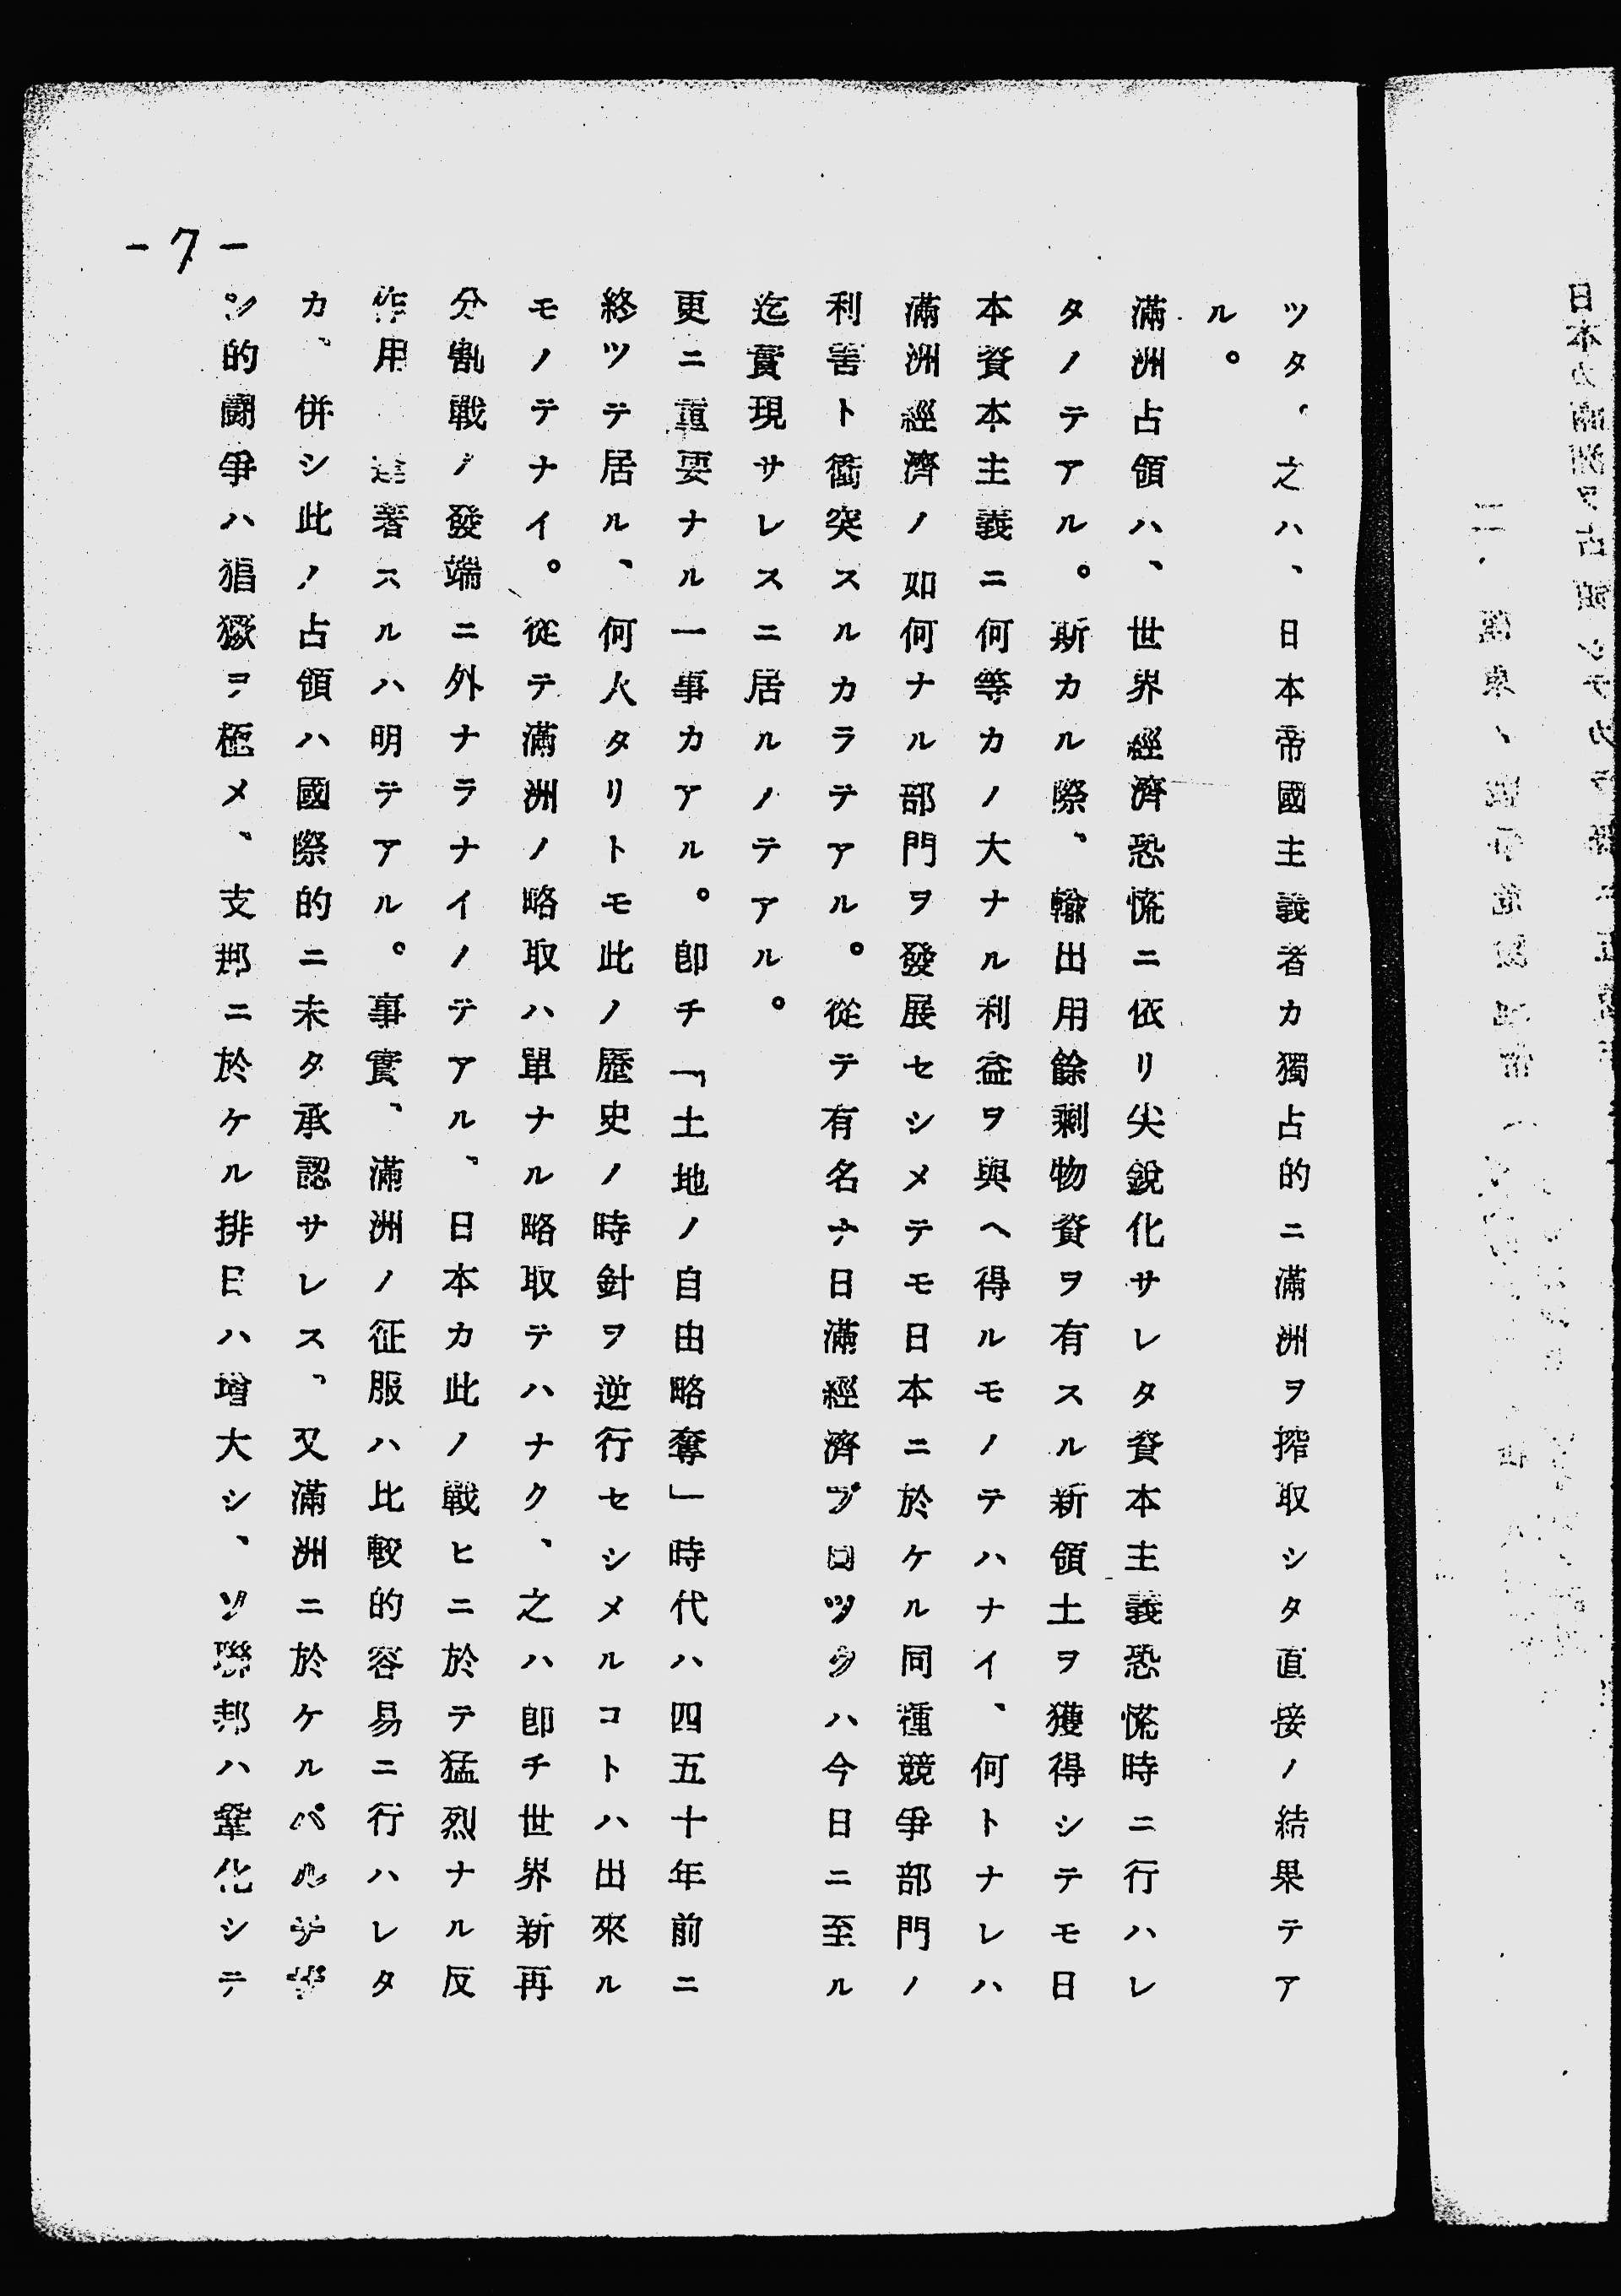 ツタ、之ハ、日本帝國主義者カ獨占的ニ滿洲ヲ搾取シタ直接ノ結果テア
ル。
滿洲占領ハ、世界經濟恐慌ニ依リ尖銳化サレタ資本主義恐慌時ニ行ハレ
タノテアル。斯カル際、輸出用餘剩物資ヲ有スル新領土ヲ獲得シテモ日
本資本主義ニ何等カノ大ナル利益ヲ與ヘ得ルモノテハナイ、何トナレハ
滿洲經濟ノ如何ナル部門ヲ發展セシメテモ日本ニ於ケル同種競爭部門ノ
利害ト衝突スルカラテアル。從テ有名ナ日滿經濟ブロツクハ今日ニ至ル
迄實現サレスニ居ルノテアル。
更ニ重要ナル一事カアル。卽チ「土地ノ自由略奪」時代ハ四五十年前ニ
終ツテ居ル、何人タリトモ此ノ歷史ノ時針ヲ逆行セシメルコトハ出來ル
モノテナイ。從テ滿洲ノ略取ハ單ナル略取テハナク、之ハ卽チ世界新再
分割戰ノ發端ニ外ナラナイノテアル、日本カ此ノ戰ヒニ於テ猛烈ナル反
作用 逢著スルハ明テアル。事實、滿洲ノ征服ハ比較的容易ニ行ハレタ
カ、併シ此ノ占領ハ國際的ニ未タ承認サレス、又滿洲ニ於ケルパルチザ
ン的鬪爭ハ猖獗ヲ極メ、支那ニ於ケル排日ハ增大シ、ソ聯邦ハ鞏化シテ
-7-